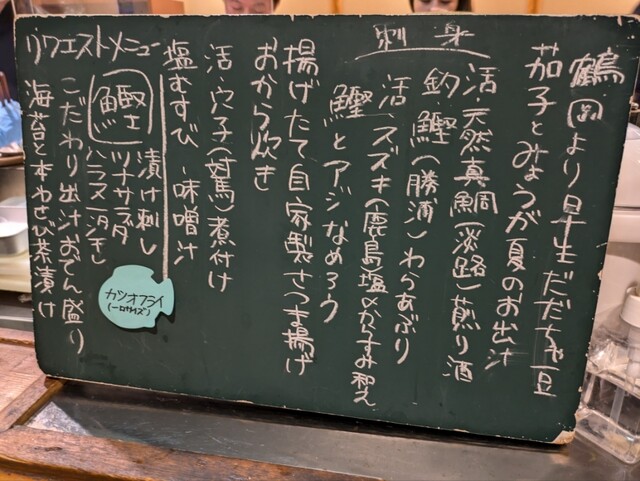 鶴岡より早生だだちゃ豆
茄子とみょうが夏のお出汁
刺身
活 天然真鯛(淡路)煎り酒
釣・鰹(勝浦)わらあぶり
活、スズキ(鹿島)塩〆かすみ和え
鰹とアジなめろう
揚げたて自家製さつま揚げ
おから炊き
活・穴子(対馬)煮付け
塩むすび 味噌汁
リクエストメニュー
鰹
漬け刺し
ツナサラダ
ハラス塩干し
カツオフライ
(一口サイズ)
こだわり出汁おでん盛り
海苔と本わさび茶漬け